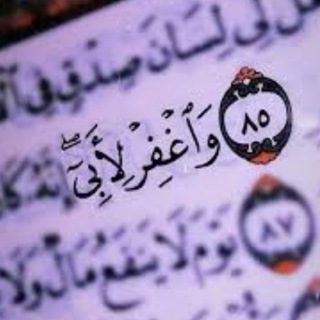 لِي لِسَانَ صِدْقٍ فِي
٨٥ وَاغْفِرْ لِأَبِي إِنَّهُ كَانَ
٨٧ يَوْمَ لَا يَنفَعُ مَالٌ وَلَا